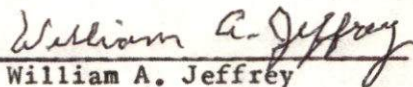 William A. Jeffrey
William A. Jeffrey